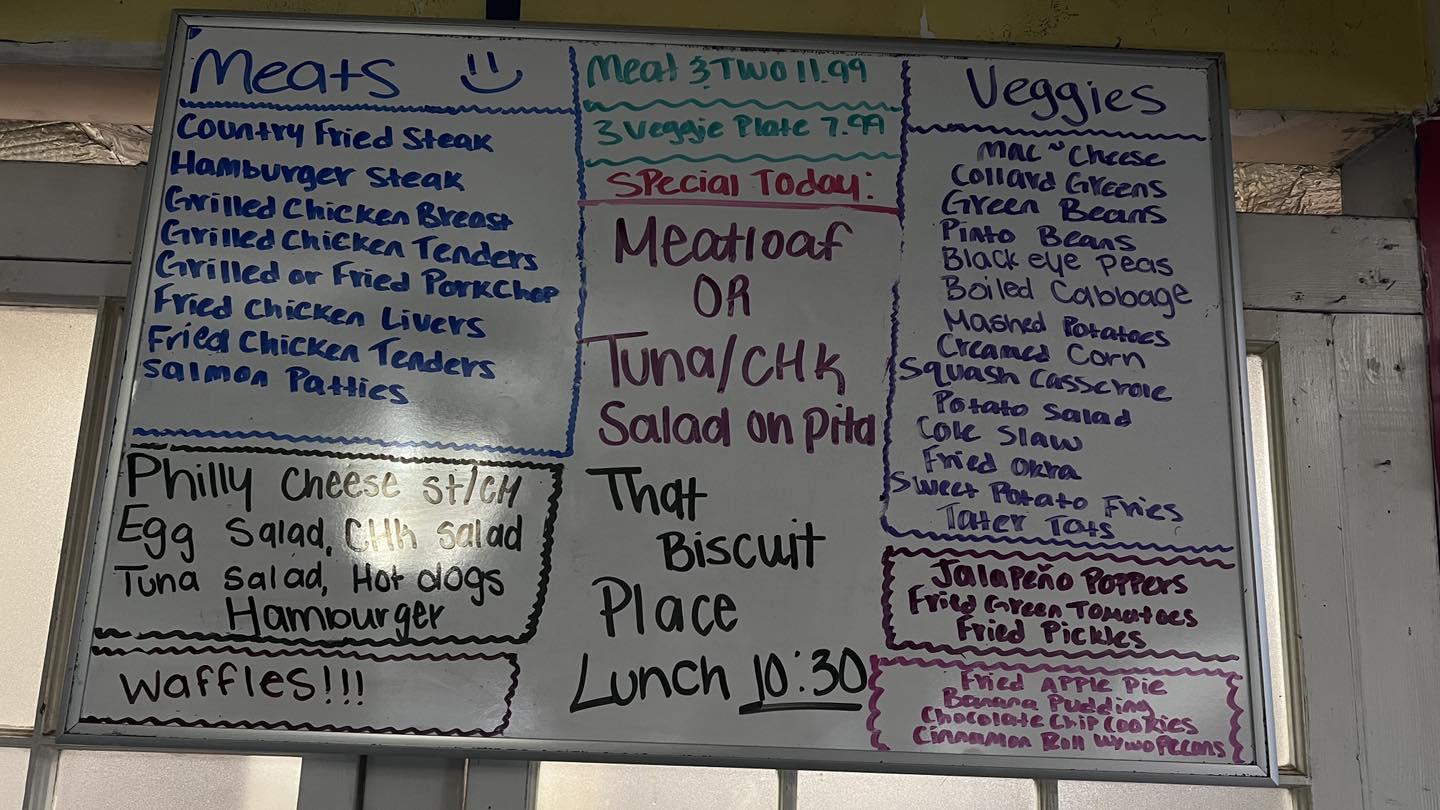 Meats
Country Fried Steak
Hamburger Steak
Grilled Chicken Breast
Grilled Chicken Tenders
Grilled or Fried PorkChop
Fried Chicken Livers
Fried Chicken Tenders
Salmon Patties
Philly Cheese St/CH
Egg Salad, CHk Salad
Tuna Salad, Hot dogs
Hamburger
Waffles!!!
Meat & Two 11.99
3 Veggie Plate 7.99
Special Today:
Meatloaf
OR
Tuna/CHk
Salad on Pita
That
Biscuit
Place
Lunch 10:30
Veggies
Mac ~ Cheese
Collard Greens
Green Beans
Pinto Beans
Black eye Peas
Boiled Cabbage
Mashed Potatoes
Creamed Corn
Squash Casserole
Potato Salad
Cole Slaw
Fried Okra
Sweet Potato Fries
Tater Tats
Jalapeño Poppers
Fried Green Tomatoes
Fried Pickles
Fried Apple Pie
Banana Pudding
Chocolate Chip Cookies
Cinnamon Roll W/WO Pecans